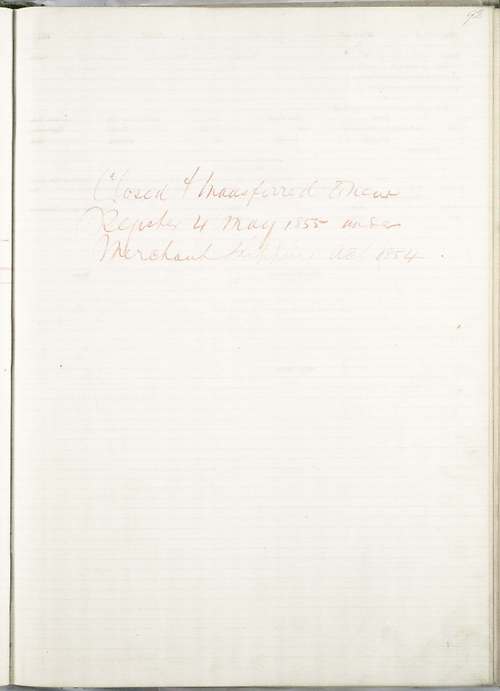 92
Closed & transferred to new
Register 4 May 1855 under
Merchant Shipping Act 1854.